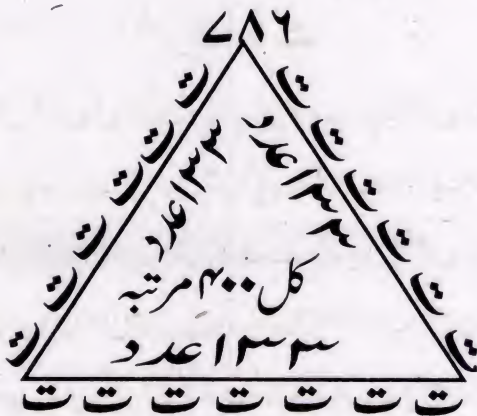 ۷۸۶
ت ت ت ت ت ت
ت ت ت ت ت ت ت ت
۱۳۳ عدد
۱۳۳ عدد
کل ۴۰۰ مرتبہ
۱۳۳ عدد
ت ت ت ت ت ت ت